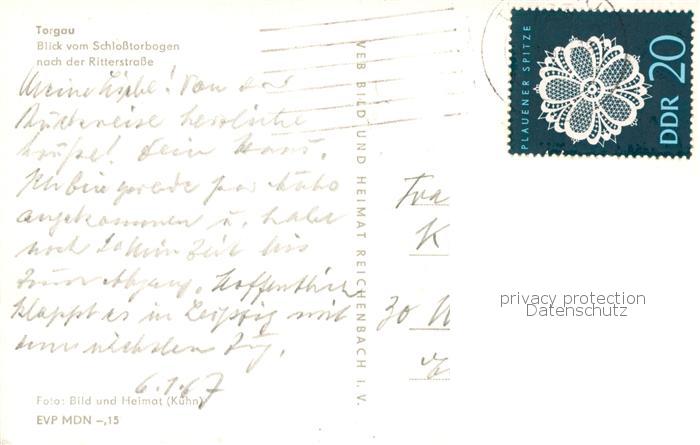 Torgau
Blick vom Schloßtorbogen
nach der Ritterstraße
Meine Liebe! Von der
Rückreise herzliche
Grüße! Dein Hans.
Ich bin gerade per
angekommen u. habe
noch 20 Min Zeit bis
Zum Abgang. Hoffentlich
klappt es in Leipzig mit
dem nächsten Zug.
6.1.67
Foto: Bild und Heimat (Kühn)
EVP MDN –,15
VEB BILD UND HEIMAT REICHENBACH I. V.
PLAUENER SPITZE
DDR 20
Fra
K
30
privacy protection
Datenschutz